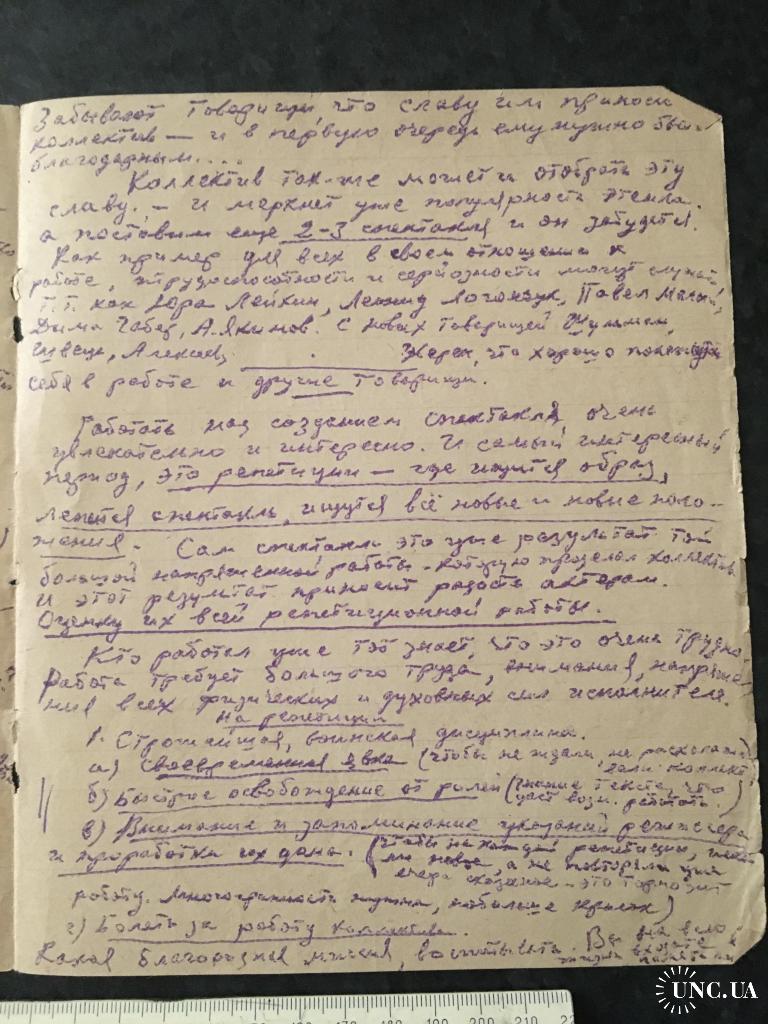 Забывают товарищи, что славу им принос
коллектив — и в первую очередь ему нужно бы
благодарным....
Коллектив так-же может и отобрать эту
славу. — и меркнет уже популярность
а поставим еще 2-3 спектакля и он забудется.
Как пример для всех в своем отношении к
работе, трудоспособности и серьозности могут служить
Т.Т. как Юра Лейкин, Леонид Павел
Дыма А. Якимов. С новых товарищей
Швець, Алексеев, что хорошо
себя в работе и другие товарищи.
Работать над созданием спектакля очень
увлекательно и интересно. И самый интересный
период, это репетиции — где ищется образ,
лепется спектакль, ищутся всё новые и новые поло-
жения. Сам спектакль это уже результат той
большой напряженной работы - которую проделал коллектив
И этот результат приносит радость актерам.
Оценку их всей репетиционной работы.
Кто работал уже тот знает, что это очень трудно.
Работа требует большого труда, внимания, напряже
ния всех физических и духовных сил исполнителя.
На репетиции
1. Строжайшая, воинская дисциплина.
а) своевременная явка (чтобы не ждали, не
коллект
б) Быстрое освобождение от ролей (знание текста, что
даст возм. работать.)
в) Внимание и запоминание указаний режиссера
и проработка их дома. (чтобы на каждой репетиции,
новое, а не повторяли уже
вчера сказаное - это тормозит
работу. Многогранность нужна,
г) Болеть за работу коллектива.
Какая благородная воспитывать. Вы
жизни
UNC.UA